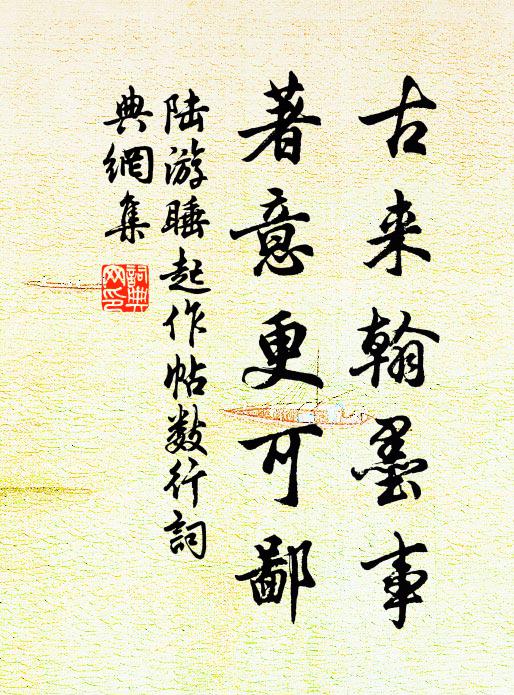 古来翰墨事
著意更可鄙
陆游睡起作帖数行词
典網集
詞典網印